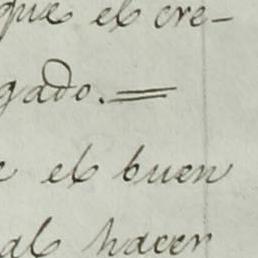 que el cre-
gado.=
e el buen
al hacer